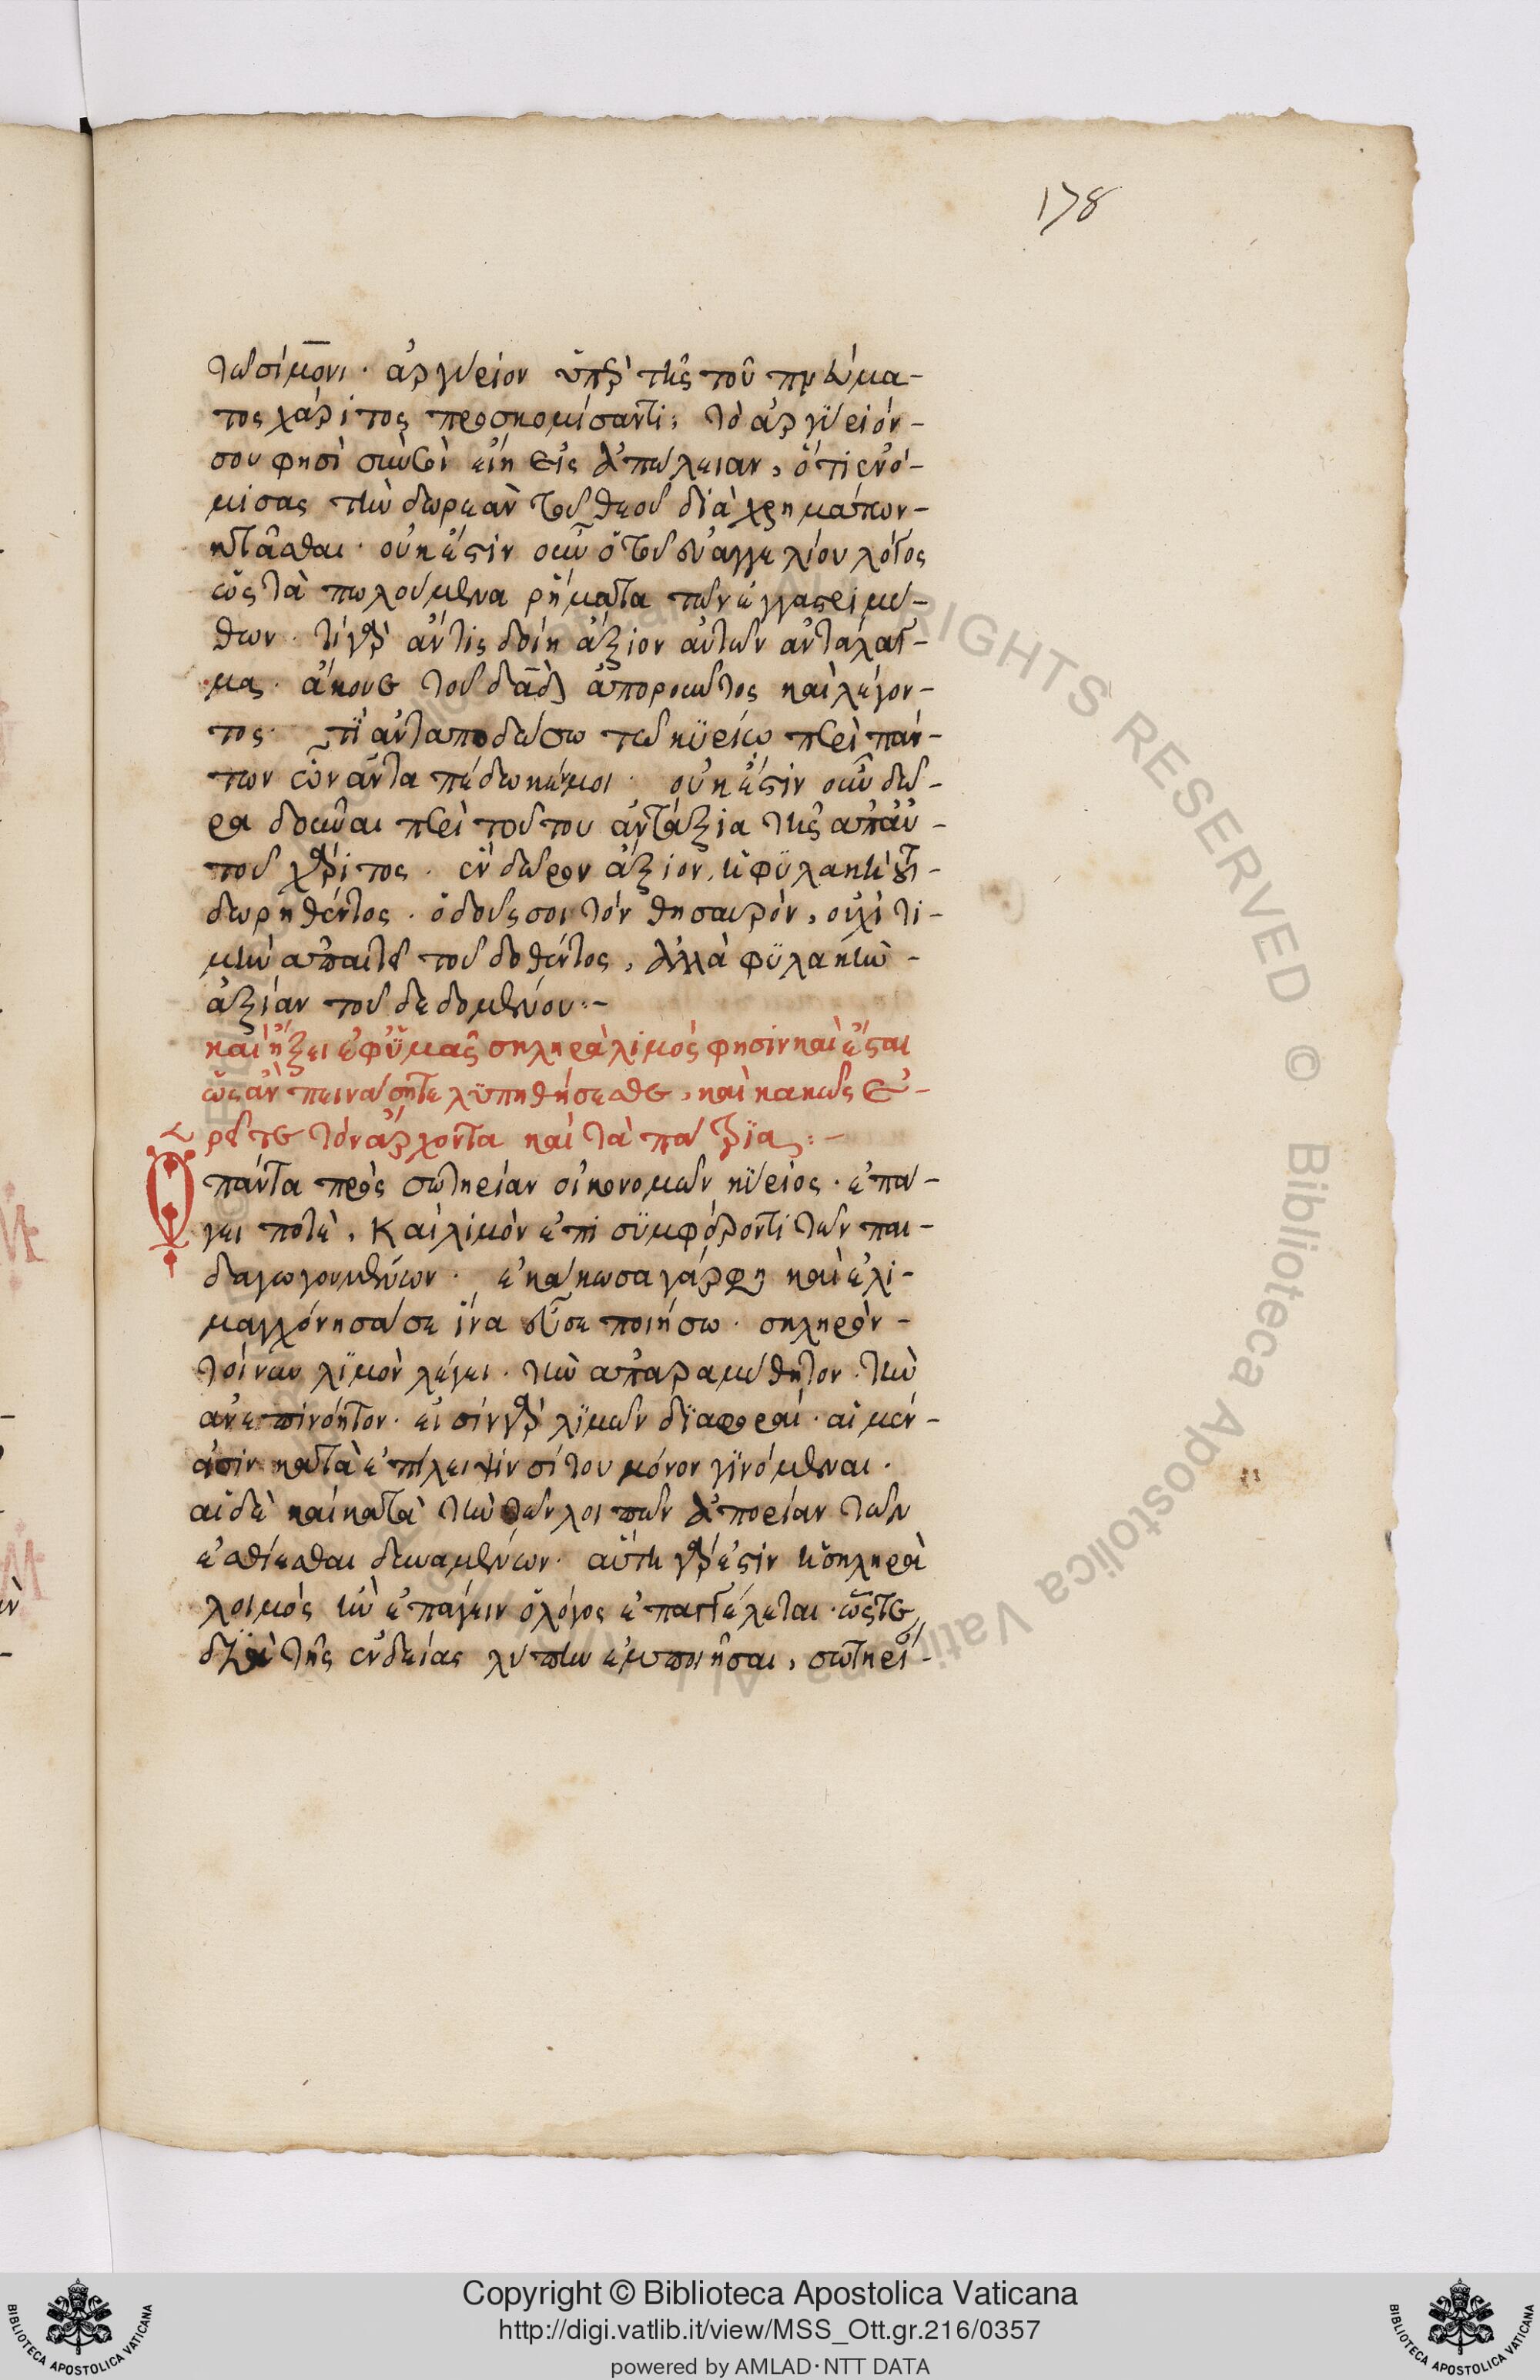 178
τῶ σίμονι · ἀργύριον ὑπὲρ τῆς τοῦ πνεύμα-
τος χάριτος προσκομίσαντι· τὸ ἀργύριόν-
σου φησὶ σὺν σοὶ εἴη εἰς ἀπώλειαν, ὅτι ἐνό-
μισας τὴν δωρεὰν τοῦ θεοῦ διὰ χρημάτων-
κτᾶσθαι · οὐκ ἔστιν οὖν ὁ τοῦ εὐαγγελίου λόγος
ὡς τὰ πωλούμενα ῥήματα τῶν ἐγγαστριμύ-
θων · τί γὰρ ἄν τις δοίη ἄξιον αὐτῶν ἀντάλαγ-
μας · ἄκουε τοῦ δᾱδ ἀποροῦντος καὶ λέγον-
τος · τί ἀνταποδώσω τῶ κυρίω περὶ πάν-
των ὧν ἀνταπέδωκέ μοι · οὐκ ἔστιν οὖν δῶ-
ρα δοῦναι περὶ τούτου ἀντάξια τῆς ἀπ' αὐ-
τοῦ χάριτος · ἓν δῶρον ἄξιον, ἡ φυλακὴ τοῦ-
δωρηθέντος · ὁ δούς σοι τὸν θησαυρὸν, οὐχὶ τι-
μὴν ἀπαιτεῖ τοῦ δοθέντος, ἀλλὰ φυλακὴν-
ἀξίαν τοῦ δεδομένου :-
καὶ ἥξει ἐφ' ὑμᾶς σκληρὰ λιμός φησὶν καὶ ἔσται
ὡς ἂν πεινάσητε λυπηθήσεσθε, καὶ κακῶς ἐ-
ρεῖτε τὸν ἄρχοντα καὶ τὰ πάτρια :-
Ὁ πάντα πρὸς σωτηρίαν οἰκονομῶν κύριος · ἐπά-
γει ποτὲ, καὶ λιμὸν ἐπὶ συμφέροντι τῶν παι-
δαγωγουμένων · ἐκάκωσα γάρ φη καὶ ἐλι-
μαγχόνησά σε ἵνα εὖ σε ποιήσω · σκληρὸν-
τοίνυν λιμὸν λέγει · τὴν ἀπαραμύθητον · τὴν
ἀνεπινόητον · εἰσὶν γὰρ λιμῶν διαφοραί · αἱ μέν-
εἰσιν κατὰ ἐπίλειψιν σίτου μόνον γινόμεναι ·
αἱ δὲ καὶ κατὰ τὴν τῶν λοιπῶν ἀπορίαν τῶν
ἐσθίεσθαι δυναμένων · αὕτη γάρ ἐστιν ἡ σκληρὰ
λοιμὸς ἣν ἐπάγειν ὁ λόγος ἐπαγγέλεται · ὥστε
διὰ τῆς ἐνδείας λύπην ἐμποιῆσαι, σωτηρί-
Copyright © Biblioteca Apostolica Vaticana
http://digi.vatlib.it/view/MSS_Ott.gr.216/0357
powered by AMLAD·NTT DATA